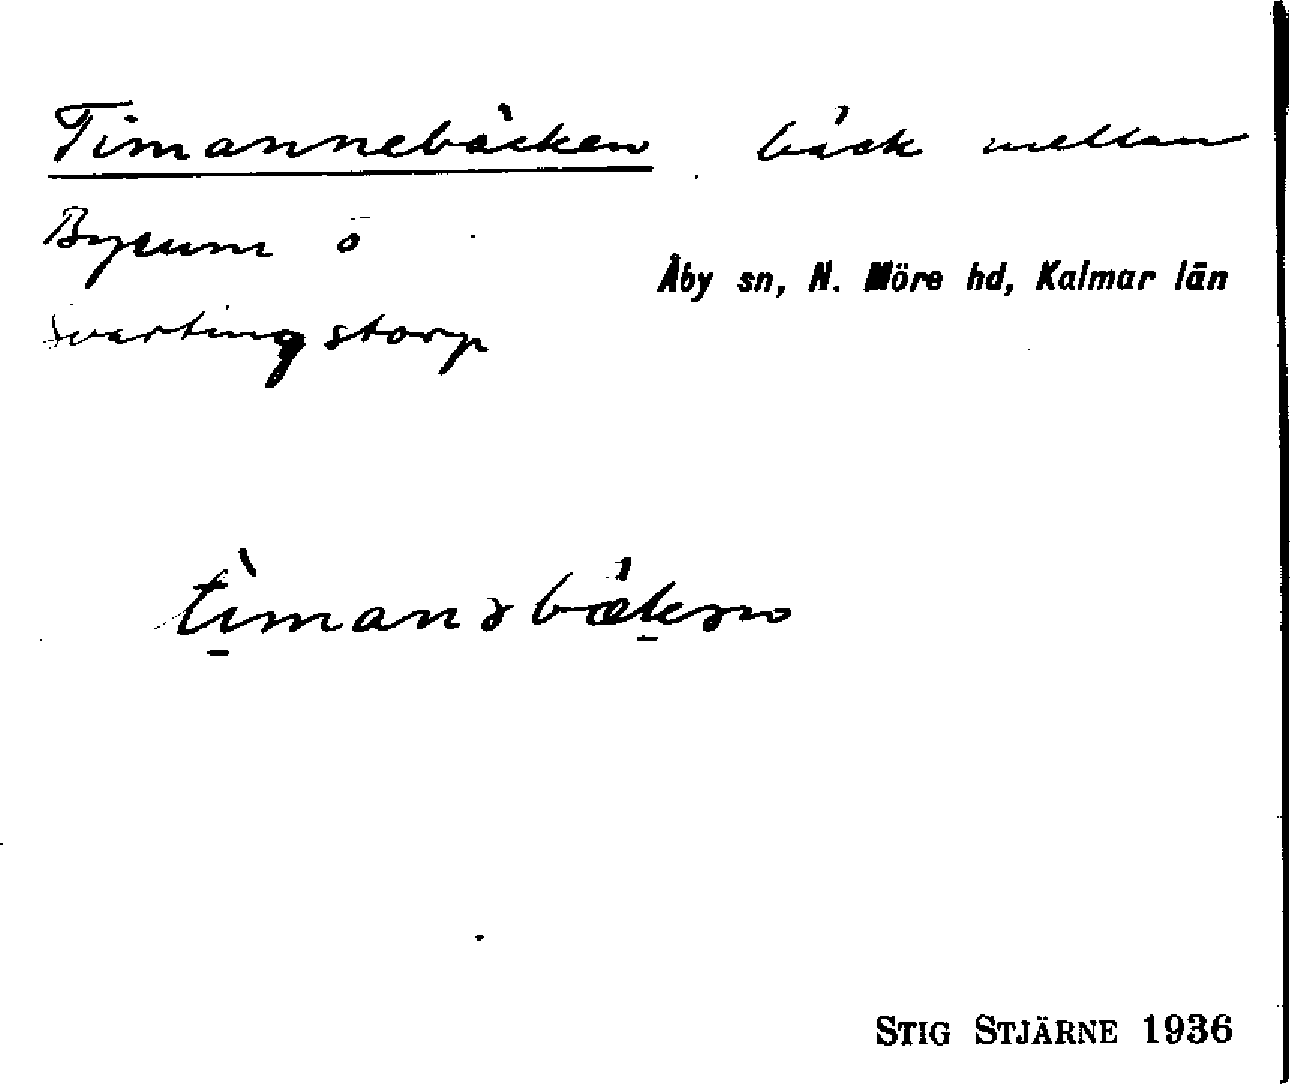 Timannebäcken bäck mellan
Byrum o
Åby sn, N. Möre hd, Kalmar län
Svartingstorp
tìmanəbǽkən
STIG STJÄRNE 1936